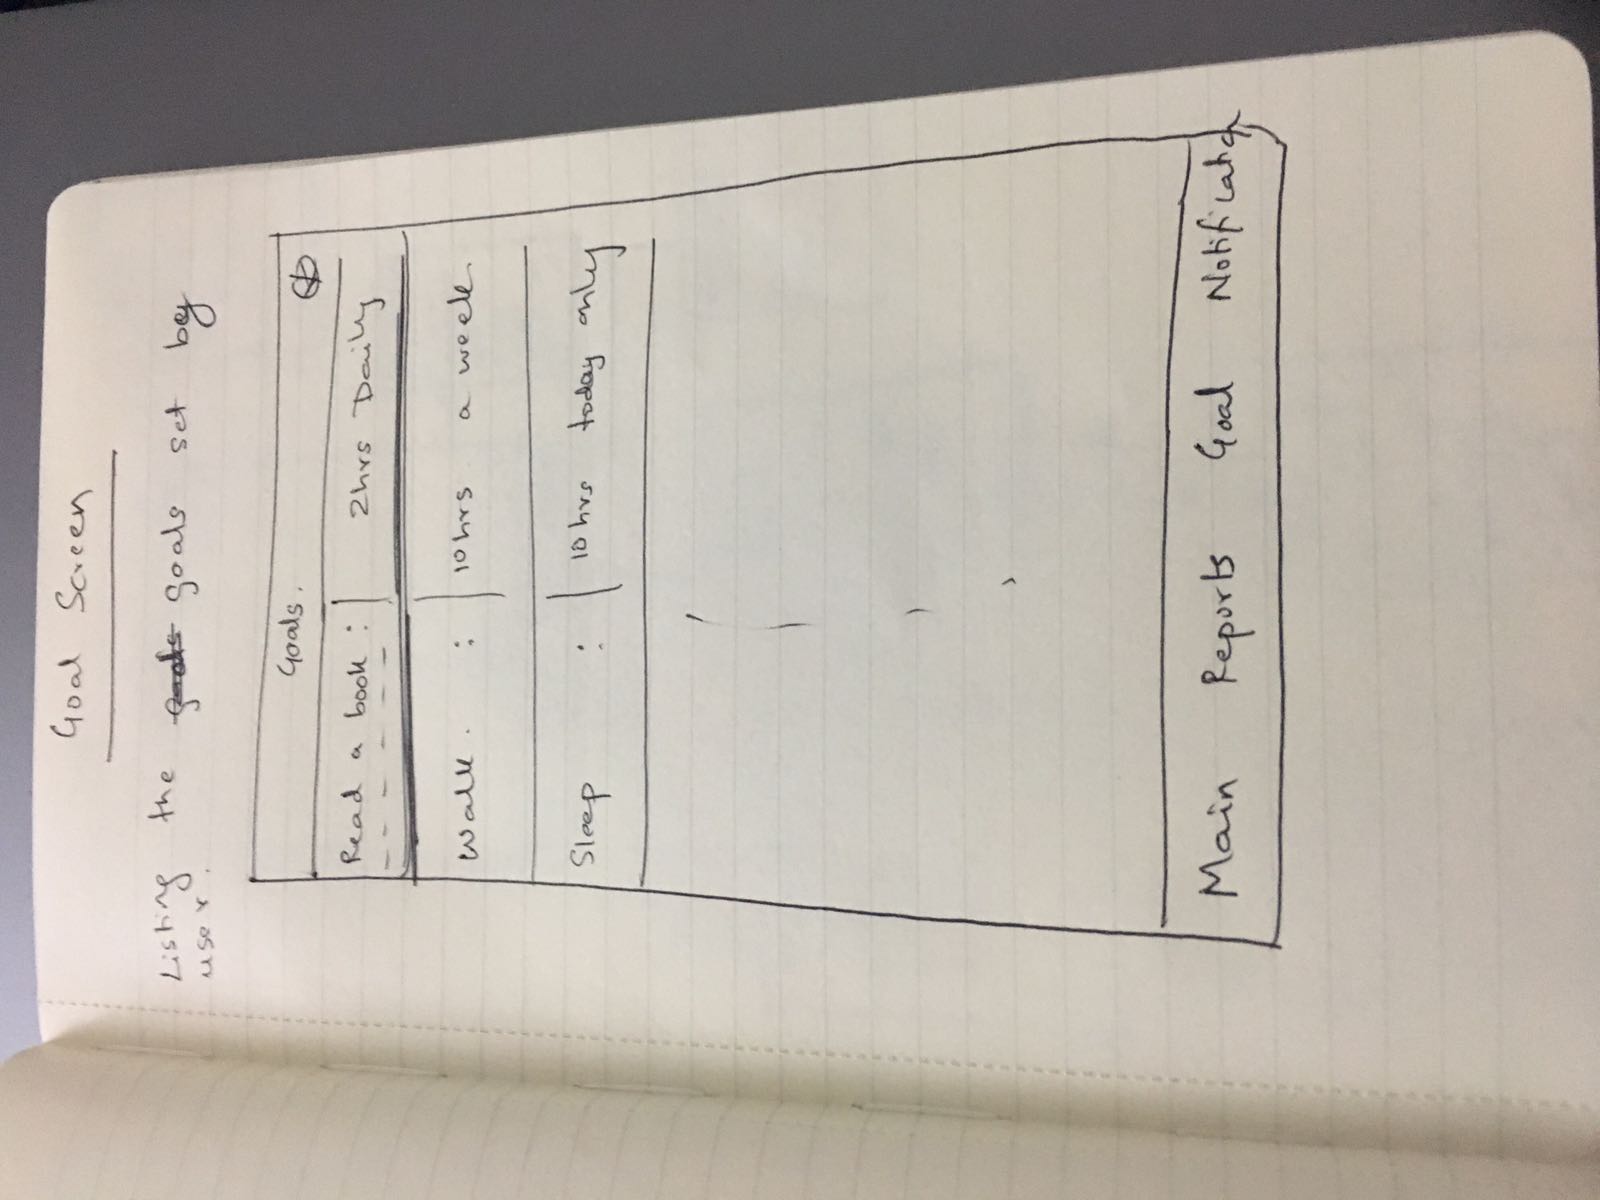 Goal Screen
Listing the goals set by
user.
Goals.
Read a book : 2hrs Daily
Walk. : 10hrs a week.
Sleep : 10hrs today only
Main Reports Goal Notificatio